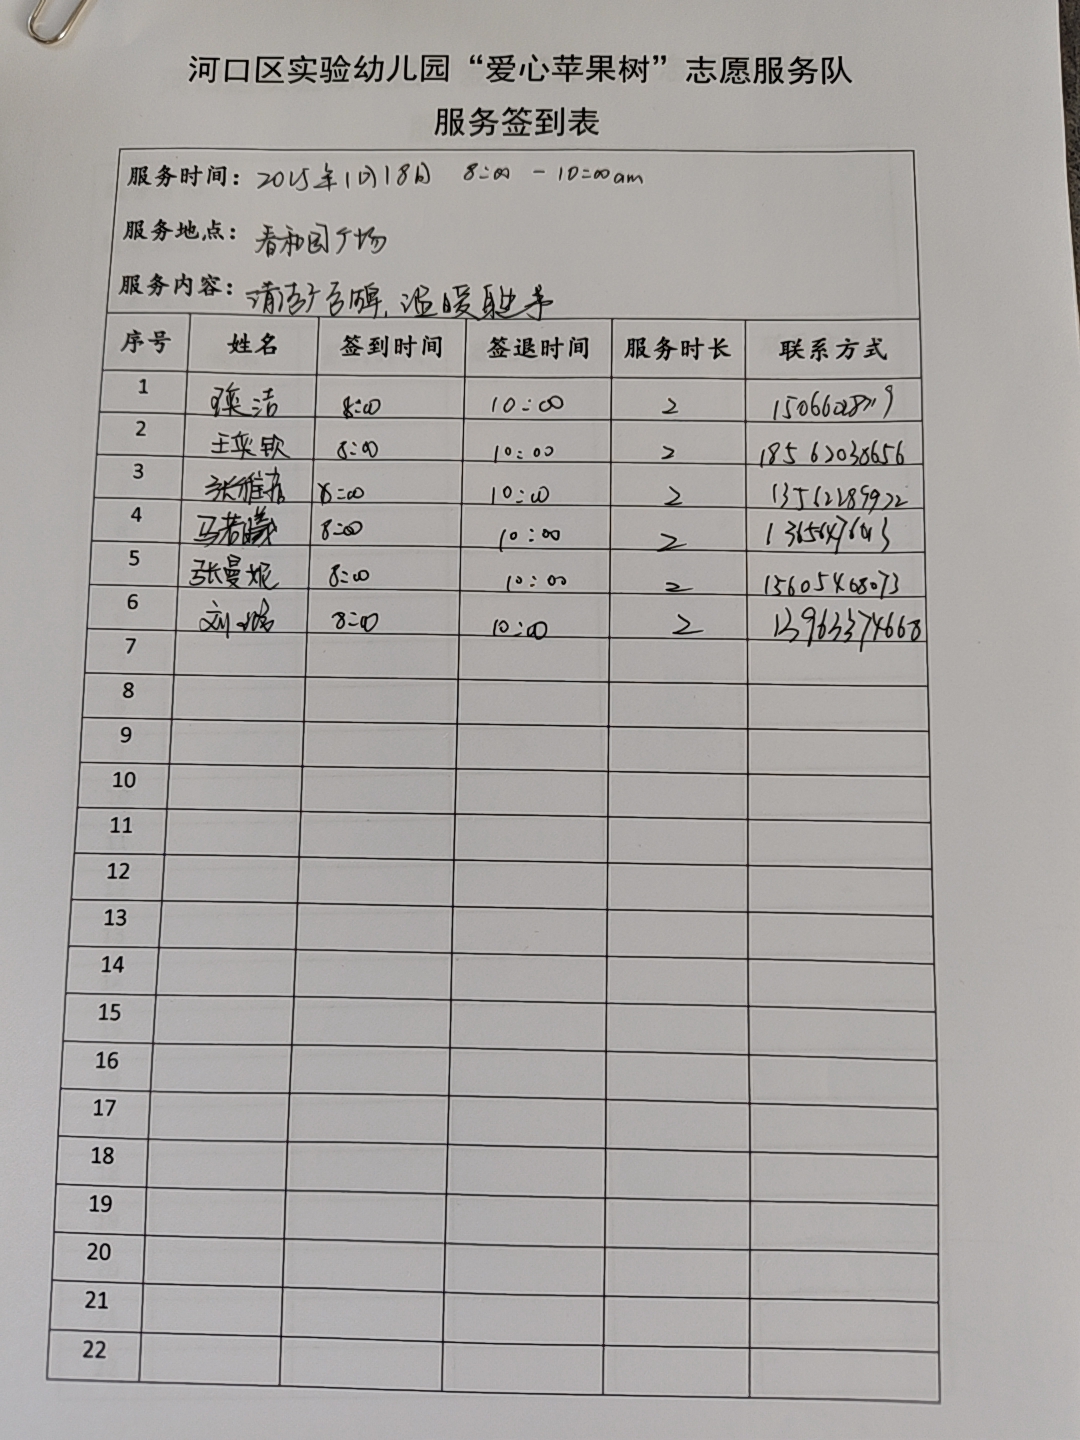 河口区实验幼儿园“爱心苹果树”志愿服务队
服务签到表
服务时间：2025年1月18日 8:00 - 10:00am
服务地点：春和园广场
服务内容：清洁广告牌，温暖
序号 姓名 签到时间 签退时间 服务时长 联系方式
1 洁 8:00 10:00 2
2 王奕钦 8:00 10:00 2 18562038656
3 张雅 8:00 10:00 2 13562289922
4 马若曦 8:00 10:00 2
5 张曼妮 8:00 10:00 2 15605468073
6 刘 8:00 10:00 2 13963374668
7
8
9
10
11
12
13
14
15
16
17
18
19
20
21
22